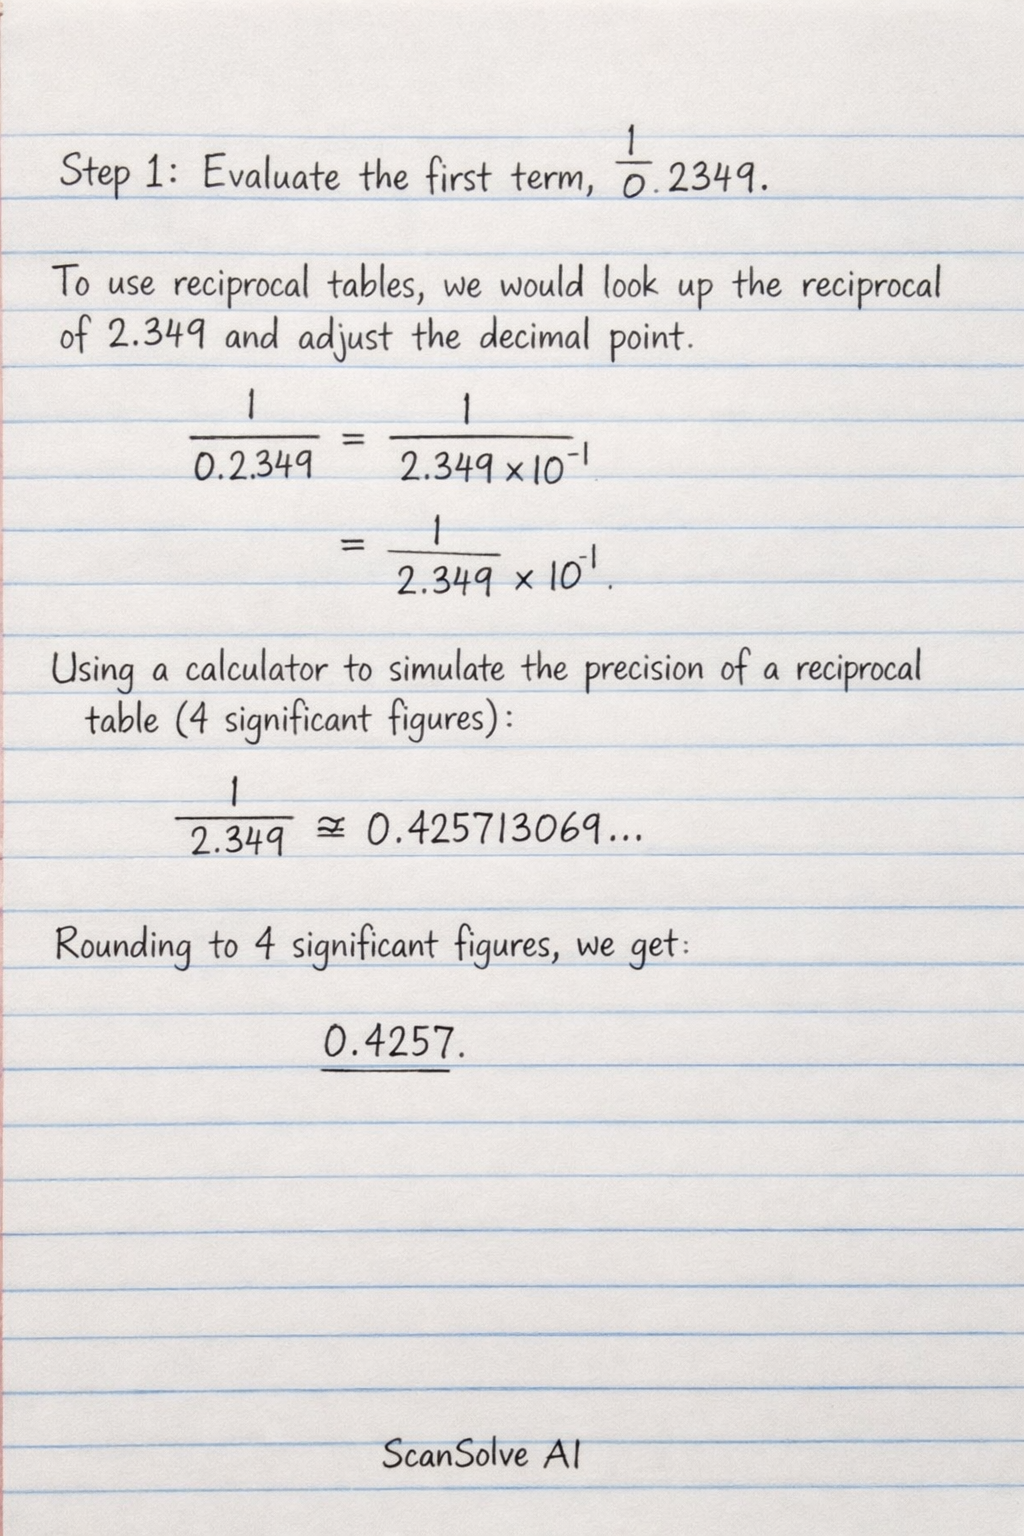 Step 1: Evaluate the first term, 1/0.2349.
To use reciprocal tables, we would look up the reciprocal
of 2.349 and adjust the decimal point.
1/0.2.349 = 1/2.349 × 10⁻¹
= 1/2.349 × 10⁻¹.
Using a calculator to simulate the precision of a reciprocal
table (4 significant figures):
1/2.349 ≅ 0.425713069...
Rounding to 4 significant figures, we get:
0.4257.
ScanSolve AI